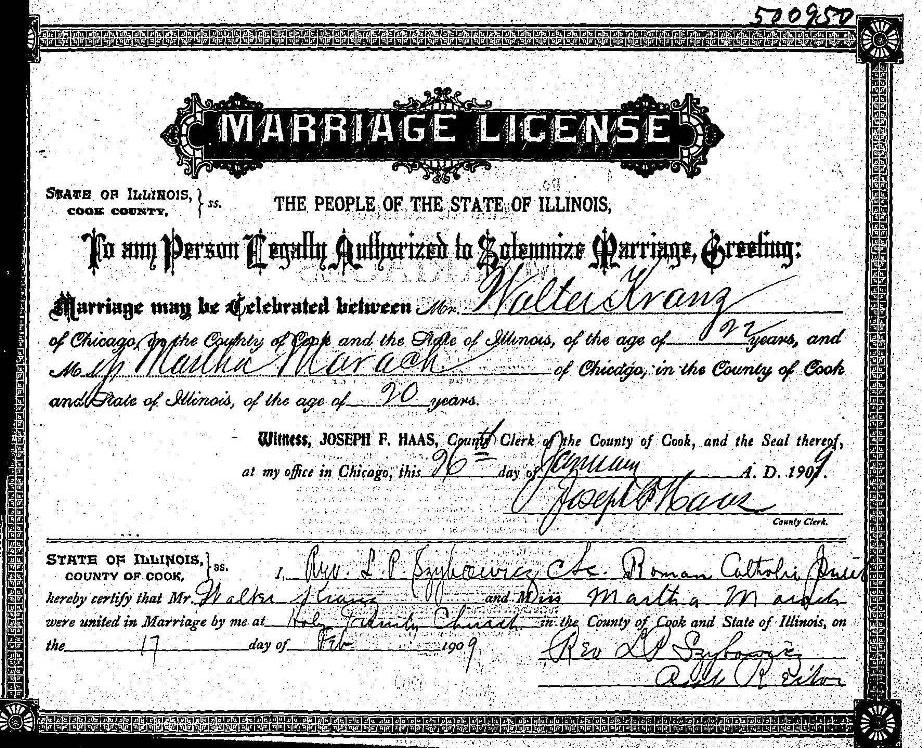 500950
MARRIAGE LICENSE
STATE OF ILLINOIS, } ss.
COOK COUNTY,
THE PEOPLE OF THE STATE OF ILLINOIS,
To any Person Legally Authorized to Solemnize Marriage, Greeting:
Marriage may be Celebrated between Mr. Walter Kranz
of Chicago, in the County of Cook and the State of Illinois, of the age of 22 years, and
Miss Martha Marach of Chicago, in the County of Cook
and State of Illinois, of the age of 20 years.
Witness, JOSEPH F. HAAS, County Clerk of the County of Cook, and the Seal thereof,
at my office in Chicago, this 26th day of January A. D. 1909.
Joseph F Haas
County Clerk.
STATE OF ILLINOIS, } ss.
COUNTY OF COOK,
I, Rev. L. P. Szybowicz Roman Catholic Priest
hereby certify that Mr. Walter Kranz and Miss Martha Marach
were united in Marriage by me at Holy Trinity Church in the County of Cook and State of Illinois, on
the 17 day of Feb 1909.
Rev L P Szybowicz